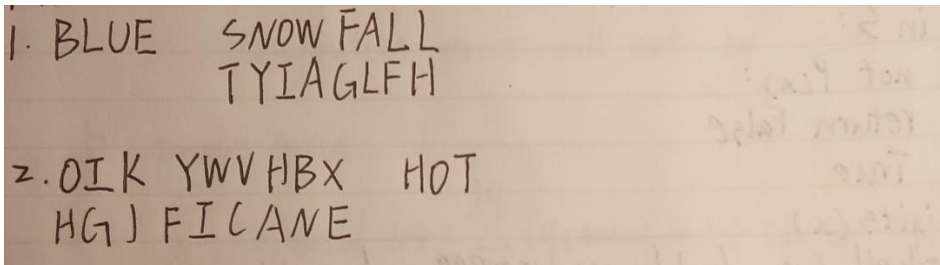 1. BLUE SNOWFALL
TYIAGLFH
2. OIK YWVHBX HOT
HGJ FICANE